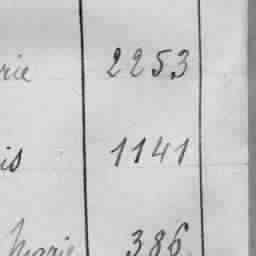 rie 2253
is 1141
Marie 386